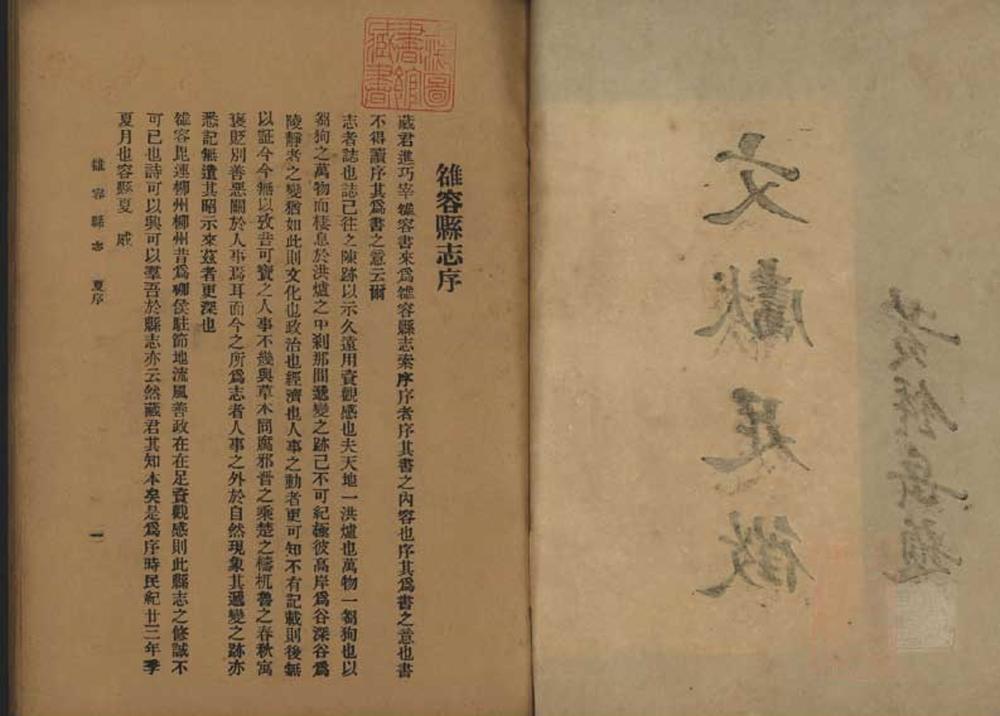 黃鍾岳題
文獻足徵
圖
書館
藏書
雒容縣志序
藏君進巧宰雒容書來爲雒容縣志索序序者序其書之內容也序其爲書之意也書
不得讀序其爲書之意云爾
志者誌也誌已往之陳跡以示久遠用資觀感也夫天地一洪爐也萬物一芻狗也以
芻狗之萬物而棲息於洪爐之中剎那間遞變之跡已不可紀極彼高岸爲谷深谷爲
陵靜者之變猶如此則文化也政治也經濟也人事之動者更可知不有記載則後無
以証今今無以攷昔可寶之人事不幾與草木同腐邪晉之乘楚之檮杌魯之春秋寓
褒貶別善惡關於人事焉耳而今之所爲志者人事之外於自然現象其遞變之跡亦
悉記無遺其昭示來茲者更深也
雒容毘連柳州柳州昔爲柳侯駐節地流風善政在在足資觀感則此縣志之修誠不
可已也詩可以興可以羣吾於縣志亦云然藏君其知本矣是爲序時民紀廿三年季
夏月也容縣夏 威
雒容縣志 夏序 一